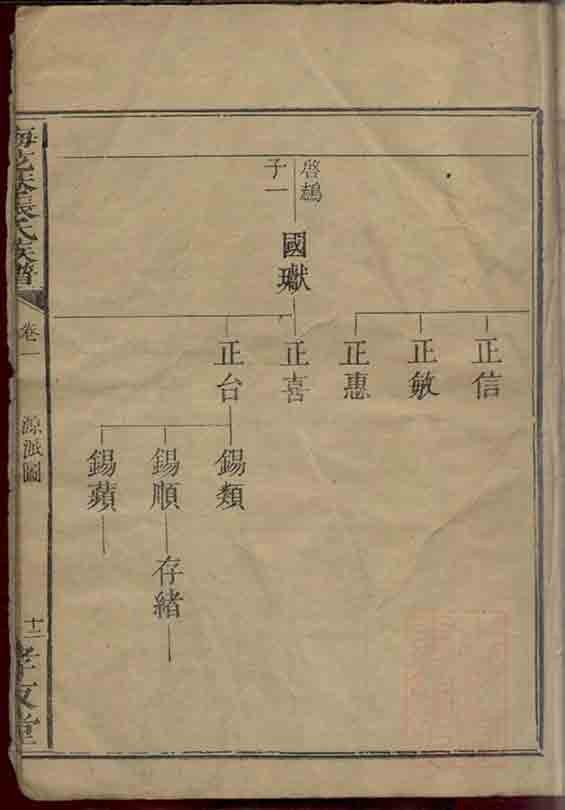 啓鵠
子一
國瓛
正信
正敏
正惠
正喜
正台
錫類
錫順
錫蘋
存緒
張氏族譜
卷一
源派圖
十二
孝友堂